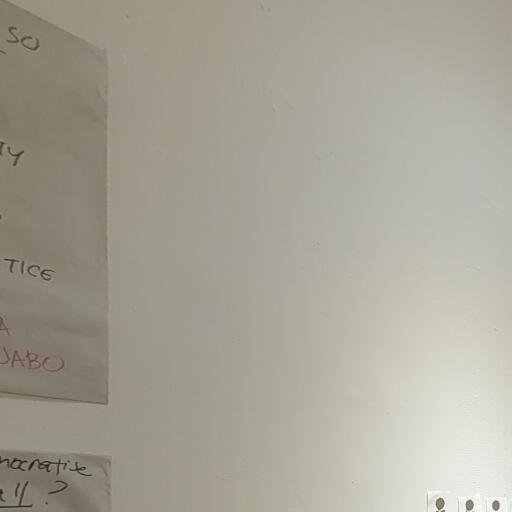 SO
TY
TICE
A
JABO
nocratise
all?